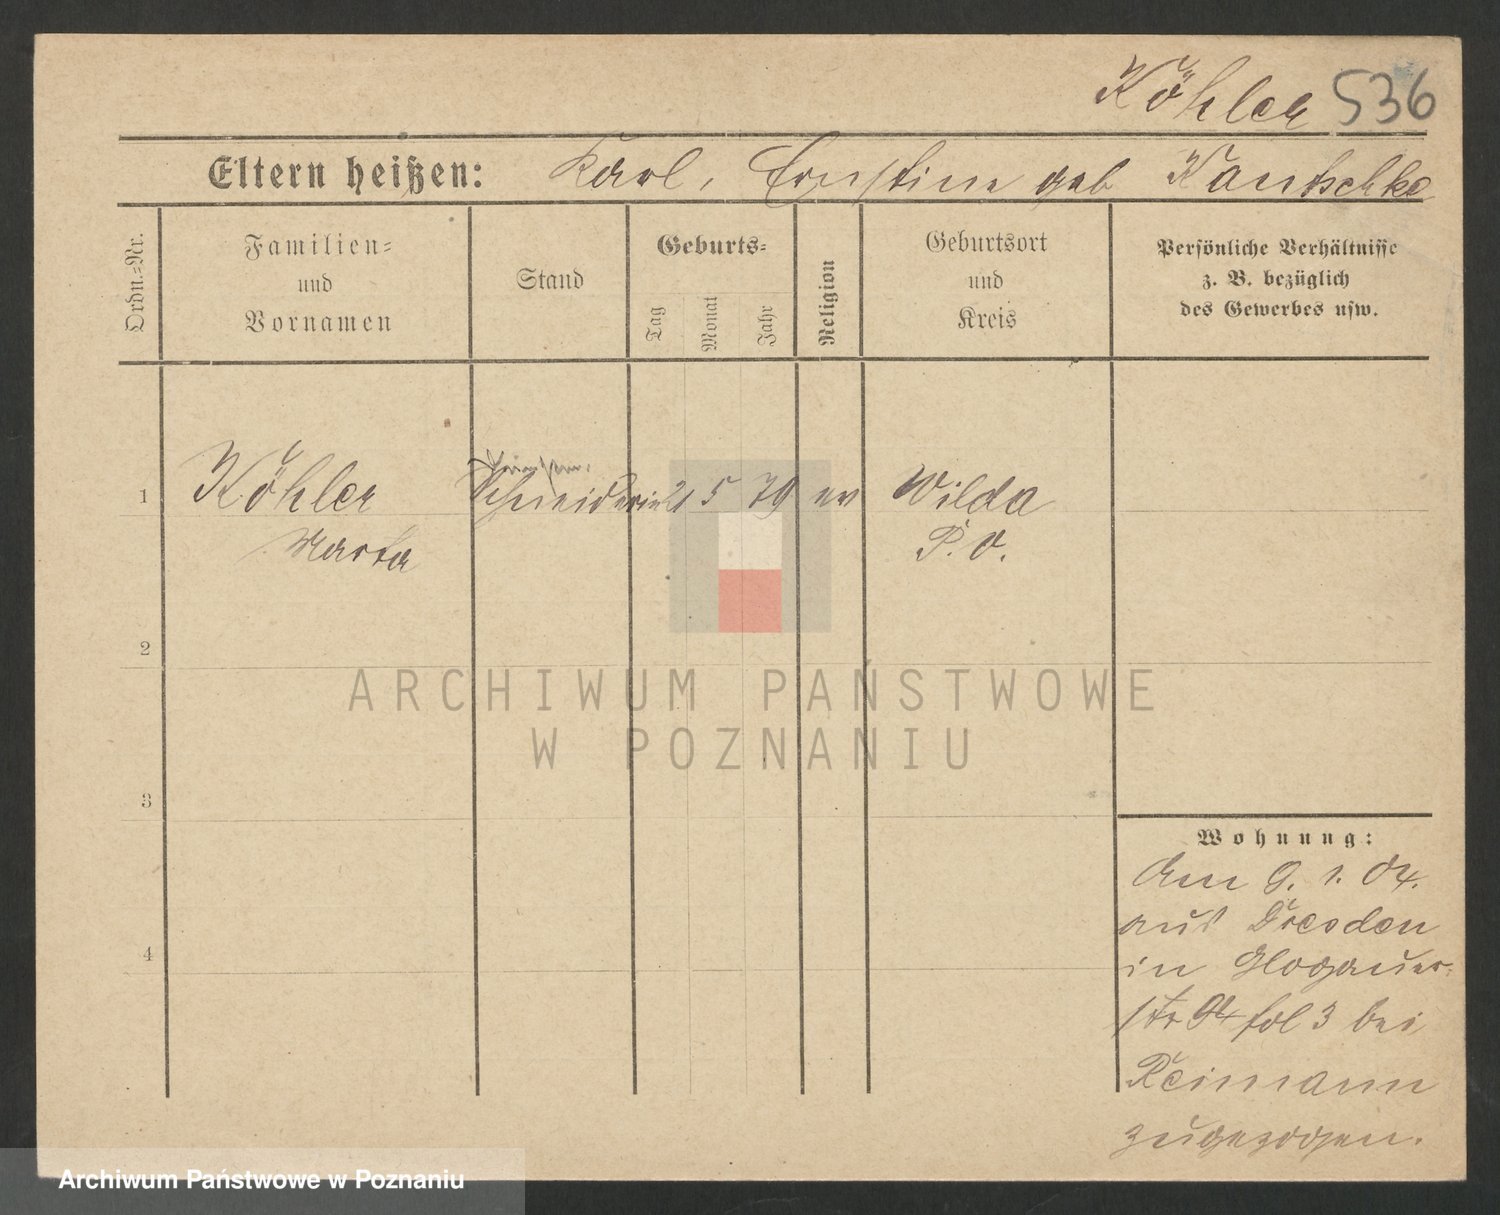 Köhler 536
Eltern heißen: Karl, Ernstine geb Kantschke
Ordn.-Nr.
Familien-
und
Vornamen
Stand
Geburts-
Tag
Monat
Jahr
Religion
Geburtsort
und
Kreis
Persönliche Verhältnisse
z. B. bezüglich
des Gewerbes usw.
1 Köhler Schneiderin 21 5 79 ev Wilda
Marta P. O.
2
3
4
ARCHIWUM PAŃSTWOWE
W POZNANIU
Wohnung:
Am 9. 1. 04.
aus Dresden
in Glogauer-
str 94 fol 3 bei
Reimann
zugezogen.
Archiwum Państwowe w Poznaniu